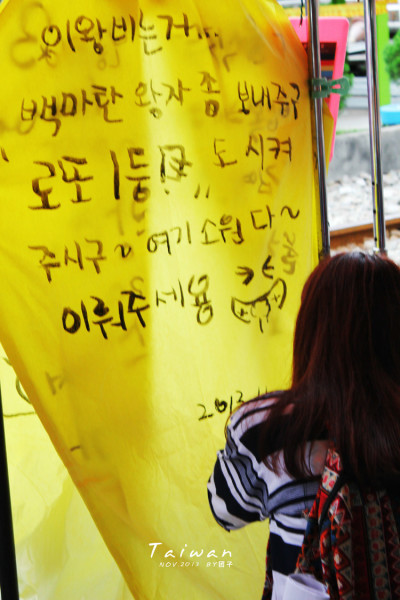 이왕비는거...
백마탄 왕자 좀 보내줍구
로또 1등도 시켜
주시구~ 여기 소원 다~
이뤄주세용 ㅋㅋ
2013.11
Taiwan
NOV.2013. BY团子